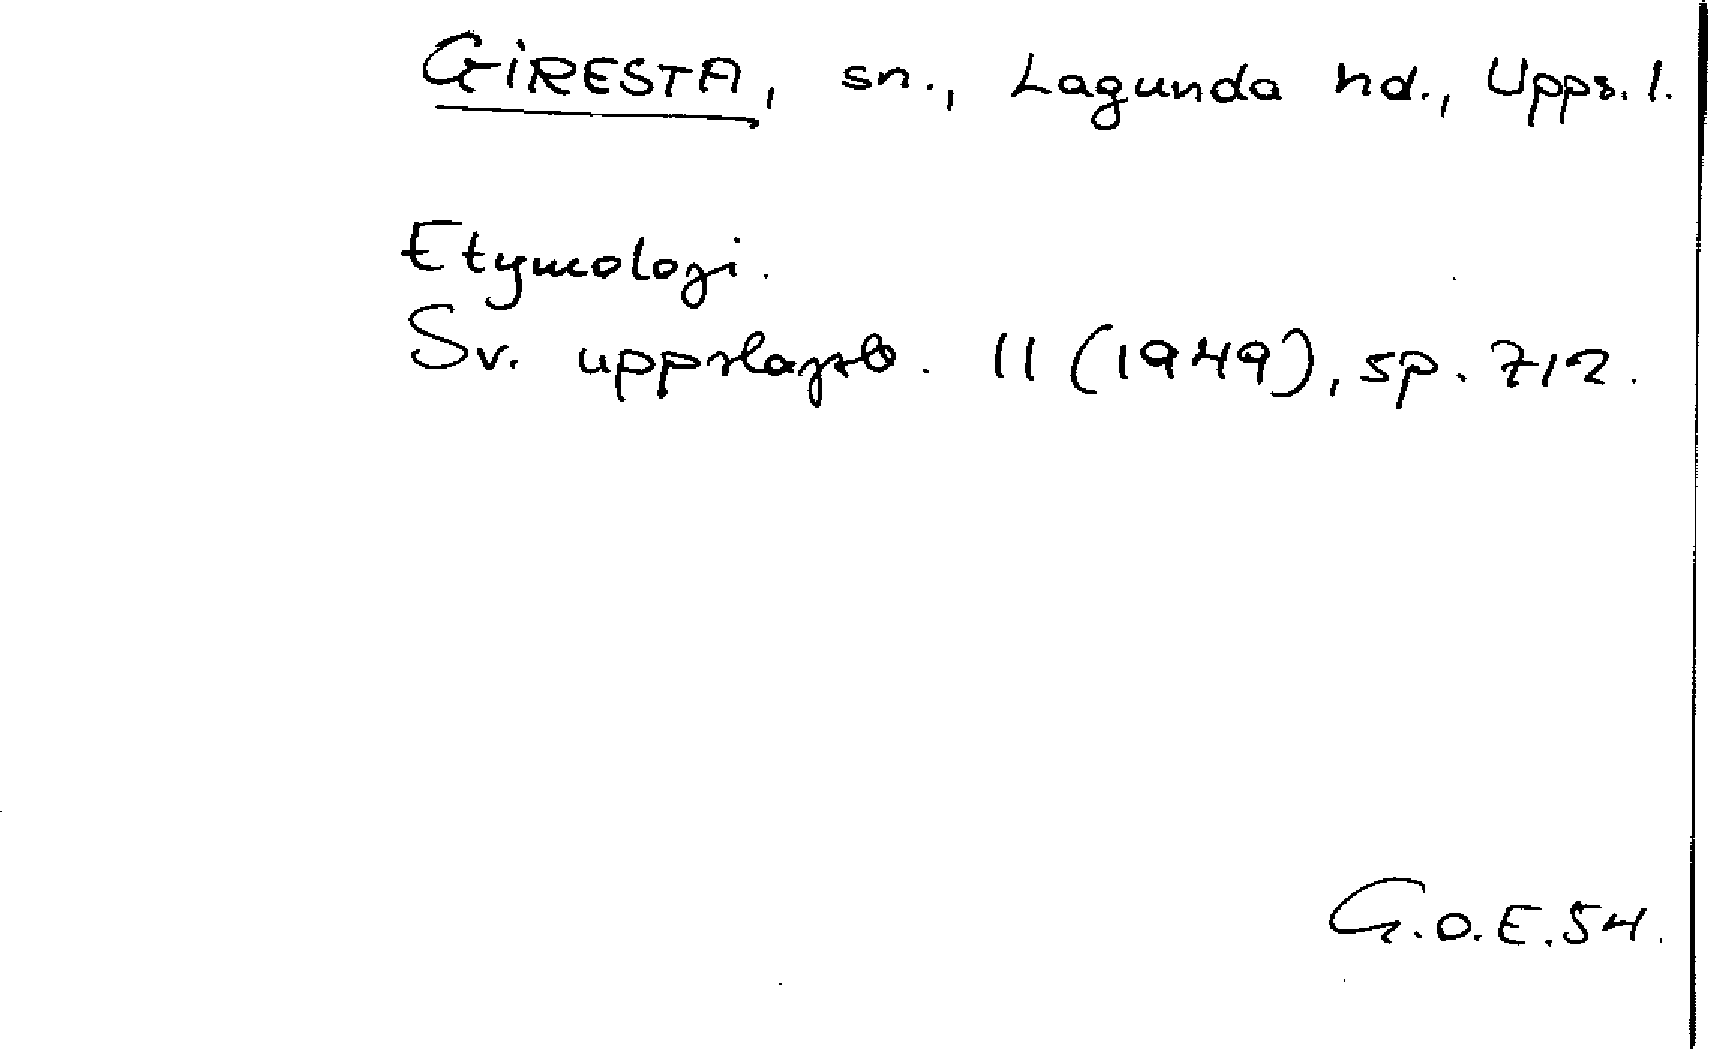 GIRESTA, sn., Lagunda hd., Upps. l.
Etymologi.
Sv. uppslagsb. 11 (1949), sp. 712.
G.O.E. 54.